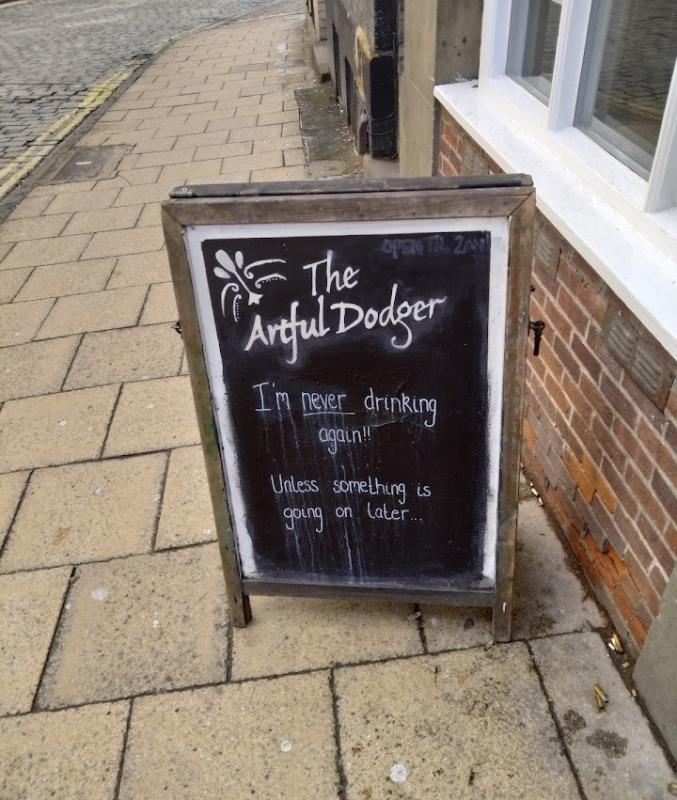 OPEN TIL 2AM
The
Artful Dodger
I'm never drinking
again!!
Unless something is
going on later...